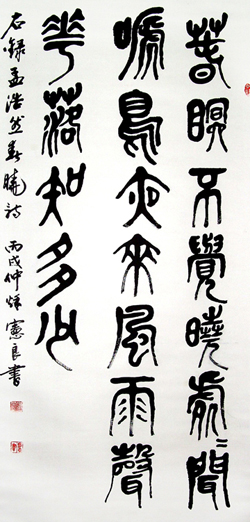 春瞑不覺曉處〻聞
嗁鳥夜來風雨聲
華落知多少
右錄孟浩然春曉詩 丙戌仲秌憲良書